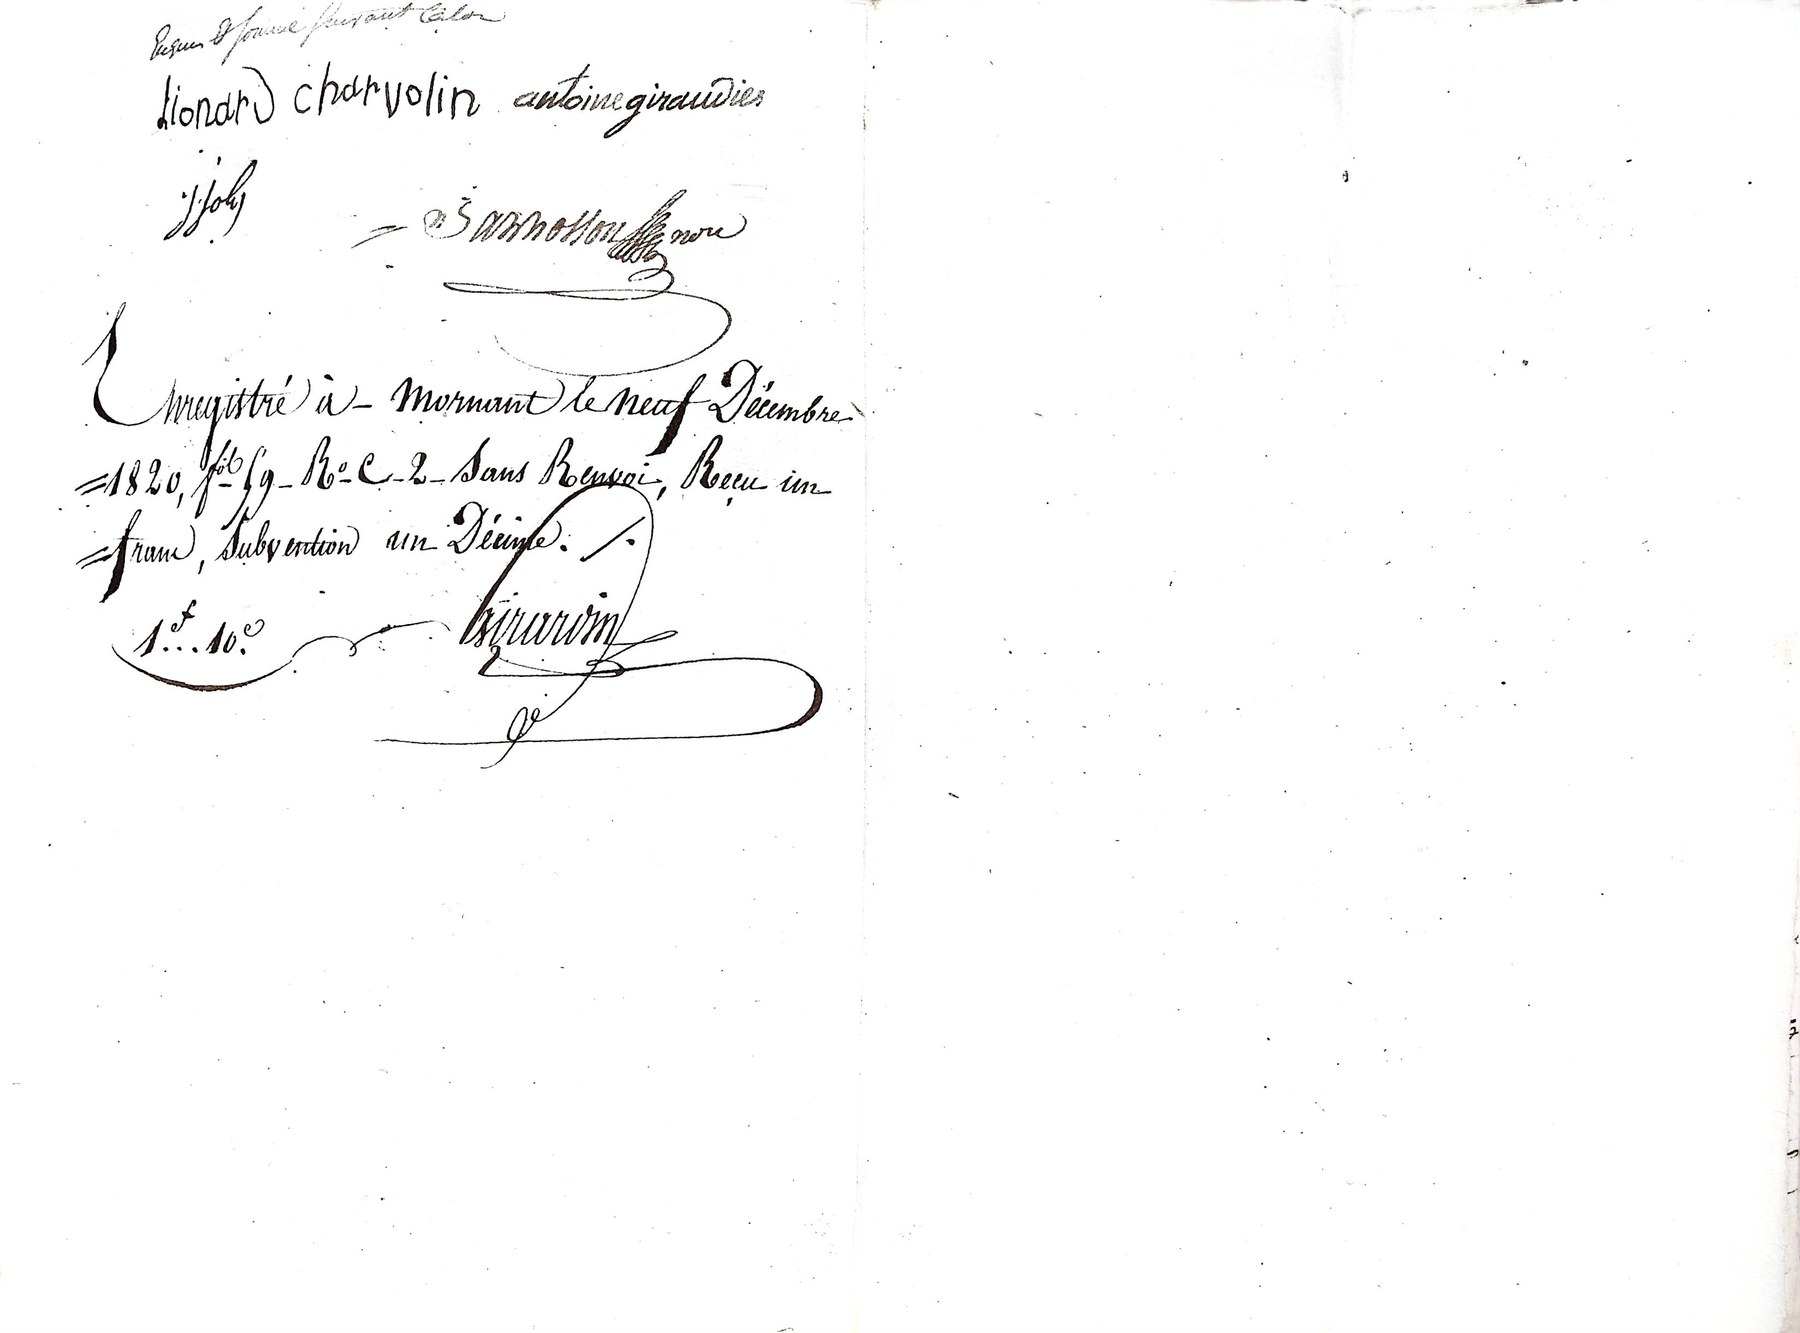 requis Et sommé suivant la loi
Lionard charvolin antoine giraudier
jjoly
nore
Enregistré à - Mornant le neuf Décembre
= 1820, fol. 59 - Ro. C. 2 - Sans Renvoi, Reçu un
= franc, Subvention un Décime. /.
1f... 10c. Girardin